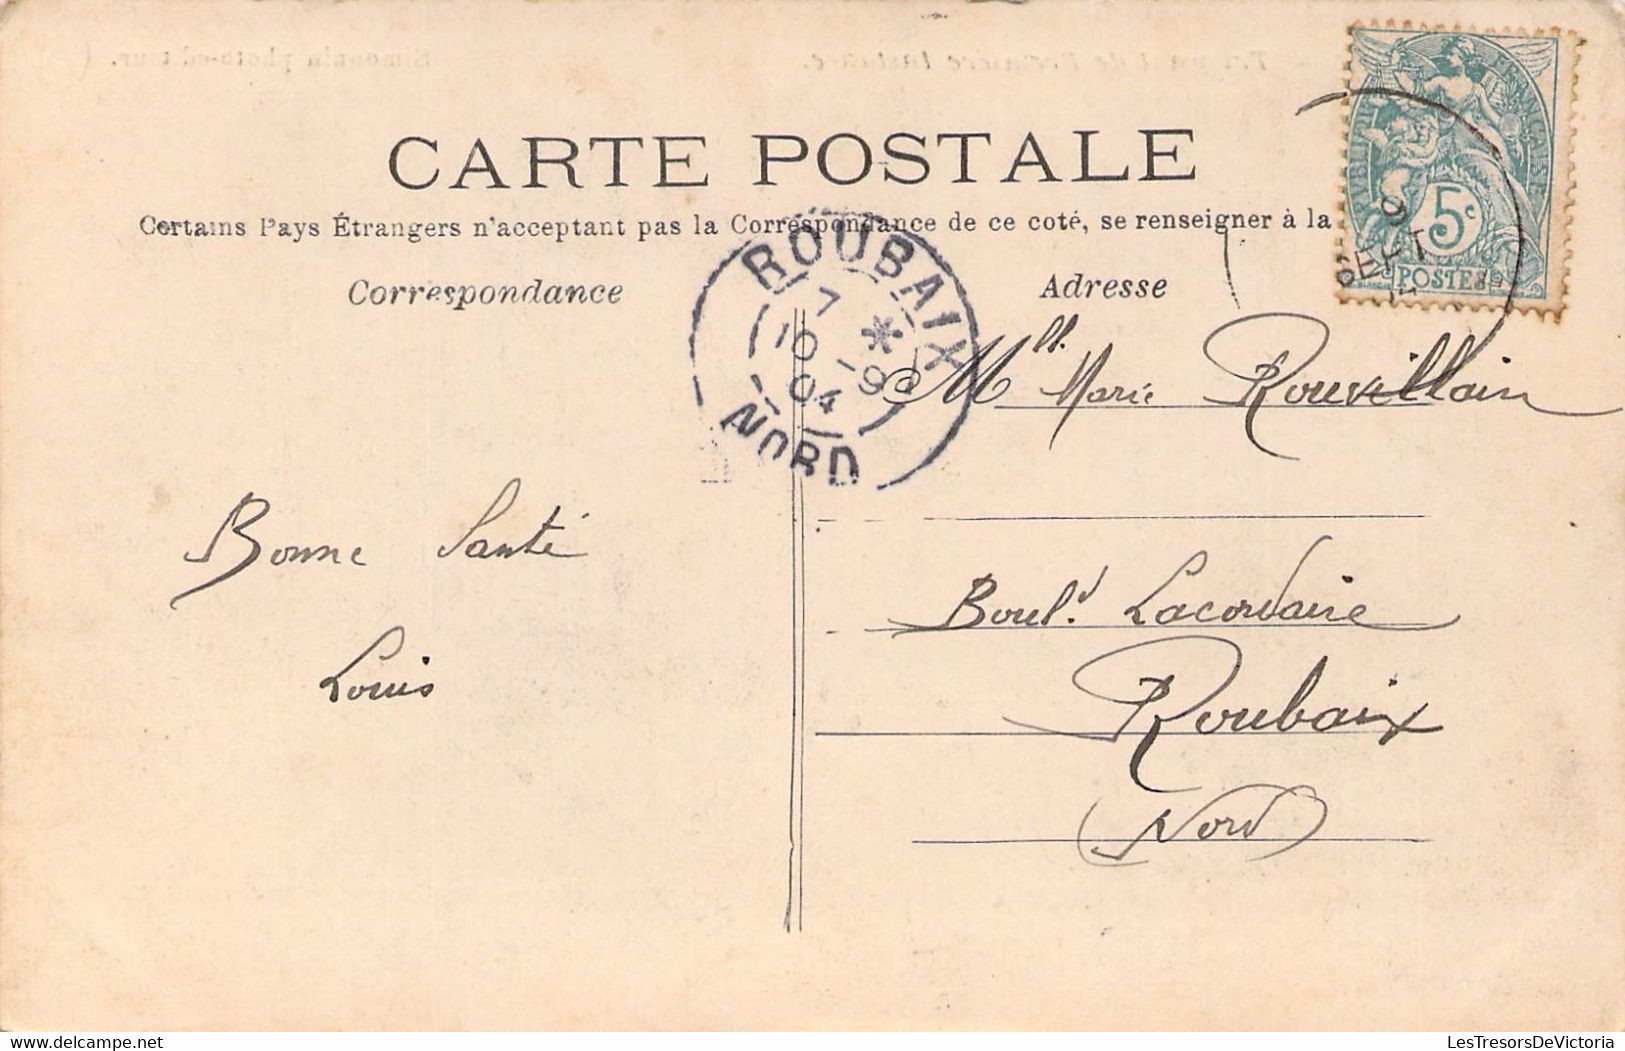 CARTE POSTALE
Certains Pays Étrangers n'acceptant pas la Correspondance de ce coté, se renseigner à la
Correspondance
Adresse
ROUBAIX
7
10 -9
04
NORD
9
SEPT
5c
POSTES
Mlle. Marie Rouvillain
Bonne Santé
Louis
Boul.d Lacordaire
Roubaix
Nord
www.delcampe.net
LesTresorsDeVictoria